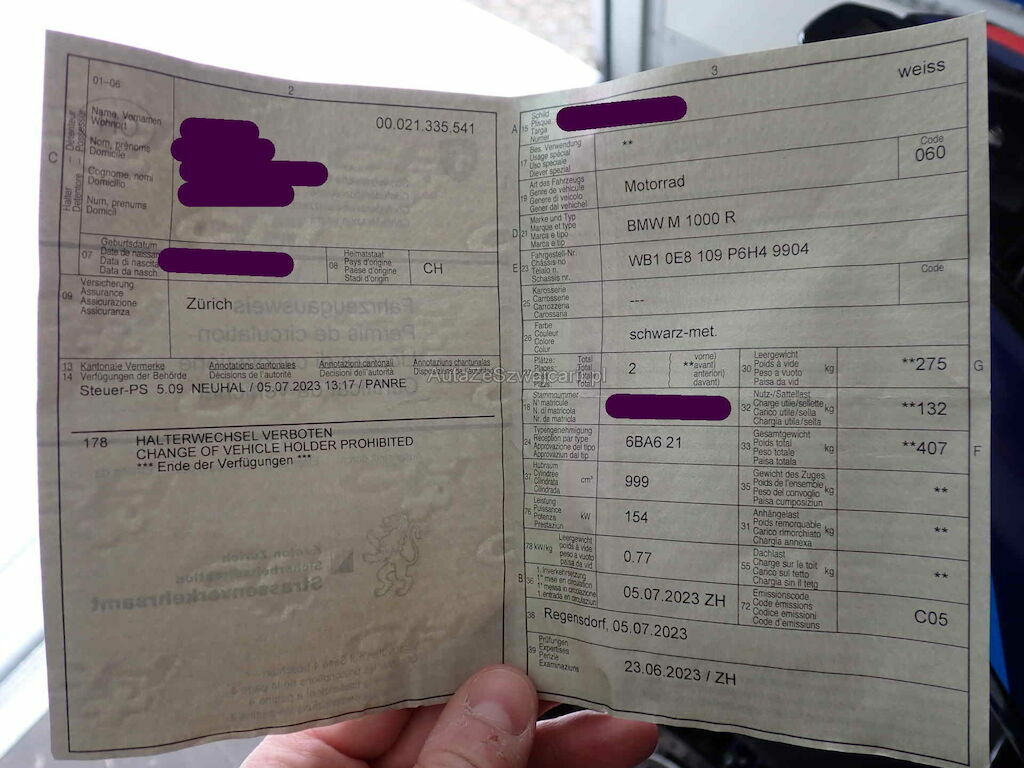 2
01–06
Name, Vornamen
Wohnort
Nom, prénoms
Domicile
Cognome, nomi
Domicilio
Num, prenums
Domicil
C
Halter
Détenteur
Detentore
Possessur
00.021.335.541
07
Geburtsdatum
Date de naissan
Data di nascita
Data da nasch.
08
Heimatstaat
Pays d'origine
Paese d'origine
Stadi d'origin
CH
09
Versicherung
Assurance
Assicurazione
Assicuranza
Zürich
13 Kantonale Vermerke Annotations cantonales Annotazioni cantonali Annotaziuns chantunalas
14 Verfügungen der Behörde Décisions de l'autorité Decisioni dell'autorità Disposiziuns da l'autoritad
Steuer-PS 5.09 NEUHAL / 05.07.2023 13:17 / PANRE
178 HALTERWECHSEL VERBOTEN
CHANGE OF VEHICLE HOLDER PROHIBITED
*** Ende der Verfügungen ***
AutazeSzwajcarii.pl
3
weiss
A 15
Schild
Plaque
Targa
Numer
17
Bes. Verwendung
Usage spécial
Uso speciale
Diever spezial
**
Code
060
19
Art des Fahrzeugs
Genre de véhicule
Genere di veicolo
Gener dal vehichel
Motorrad
D 21
Marke und Typ
Marque et type
Marca e tipo
Marca e tip
BMW M 1000 R
E 23
Fahrgestell-Nr.
Châssis no
Telaio n.
Schassis nr.
WB1 0E8 109 P6H4 9904
25
Karosserie
Carrosserie
Carrozzeria
Carossaria
---
Code
26
Farbe
Couleur
Colore
Colur
schwarz-met.
Plätze: Total
Places: Total
2
( **vorne)
avant)
anteriori)
davant)
30
Leergewicht
Poids à vide
Peso a vuoto
Paisa da vid
kg
**275
G
18
Stammnummer
N matricule
N. di matricola
Nr. da matricla
32
Nutz-/Sattellast
Charge utile/sellette
Carico utile/sella
Chargia utila/sella
kg
**132
24
Typengenehmigung
Réception par type
Approvazione del tipo
Approvaziun dal tip
6BA6 21
33
Gesamtgewicht
Poids total
Peso totale
Paisa totala
kg
**407
F
37
Hubraum
Cylindrée
Cilindrata
Cilindrada
cm³
999
35
Gewicht des Zuges
Poids de l'ensemble
Peso del convoglio
Paisa cumposiziun
kg
**
76
Leistung
Puissance
Potenza
Prestaziun
kW
154
31
Anhängelast
Poids remorquable
Carico rimorchiato
Chargia annexa
kg
**
78 kW/kg
Leergewicht
poids à vide
peso a vuoto
paisa da vid
0.77
55
Dachlast
Charge sur le toit
Carico sul tetto
Chargia sin il tetg
kg
**
B 36
1. Inverkehrsetzung
1re mise en circulation
1a messa in circolazione
1. entrada en circulaziun
05.07.2023 ZH
72
Emissionscode
Code émissions
Codice emissioni
Code d'emissiuns
C05
38
Regensdorf, 05.07.2023
39
Prüfungen
Expertises
Perizie
Examinaziuns
23.06.2023 / ZH